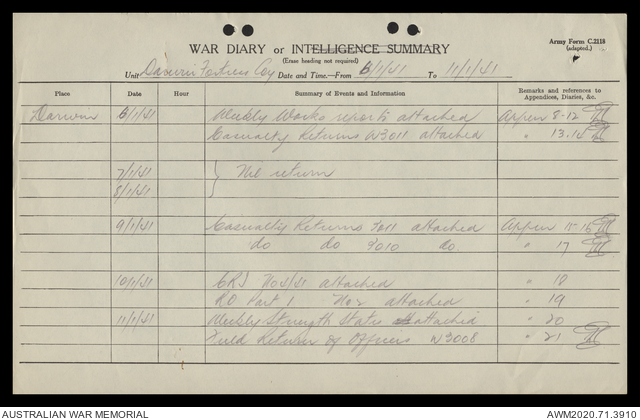 Army Form C.2118
(adapted.)
WAR DIARY or INTELLIGENCE SUMMARY
(Erase heading not required)
Unit Darwin Fortress Coy Date and Time.—From 6/1/41 To 11/1/41
Place Date Hour Summary of Events and Information Remarks and references to Appendices, Diaries, &c.
Darwin 6/1/41 Weekly Works reports attached Appen 8-12
Casualty Returns W3011 attached " 13.14
7/1/41 } Nil return
8/1/41
9/1/41 Casualty Returns attached Appen 15-16
do do do. " 17
10/1/41 No4/41 attached " 18
RO Part 1 No2 attached " 19
11/1/41 Weekly Strength States attached " 20
Field Return of Officers W3008 " 21
AUSTRALIAN WAR MEMORIAL
AWM2020.71.3910